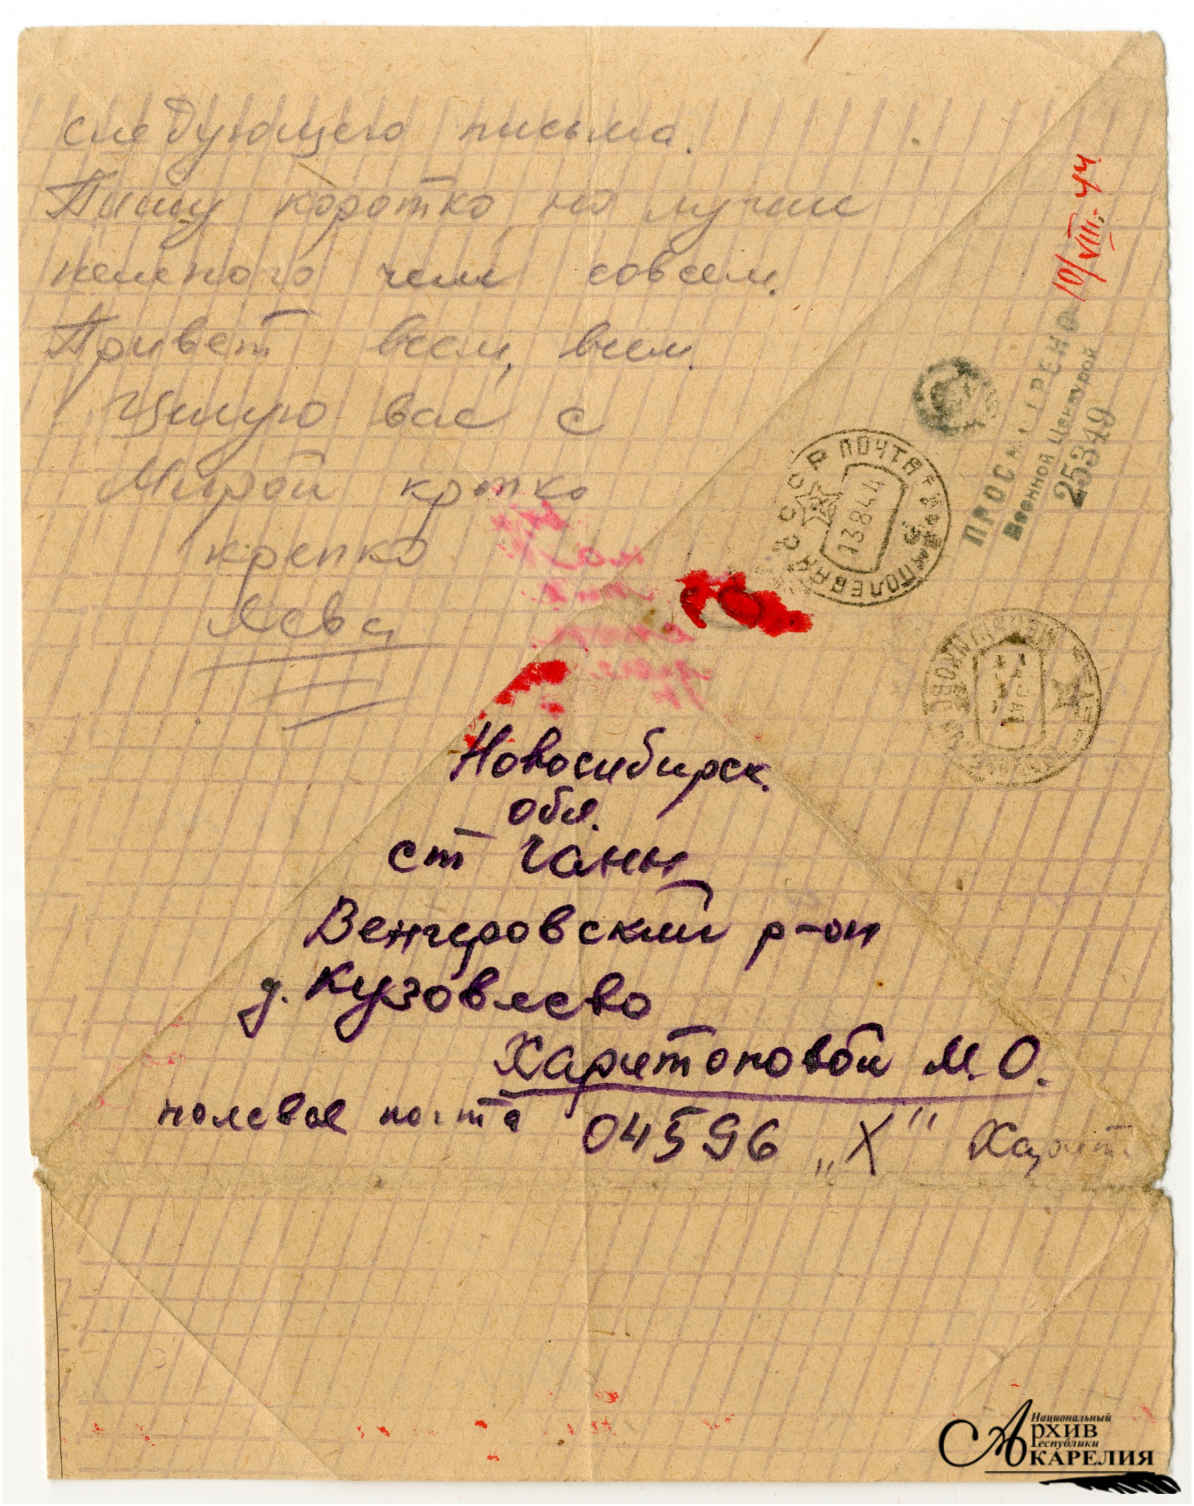 следующего письма.
Пишу коротко, но лучше
немного чем совсем.
Привет всем, всем.
Целую вас с
Мирой крепко
крепко
Лева
10/VIII-44
ПРОСМОТРЕНО
Военной Цензурой
25349
СССР ПОЛЕВАЯ ПОЧТА
13844
Новосибирск.
обл.
ст Чаны
Венгеровский р-он
д. Кузовлево
Харитоновой М.О.
полевая почта 04596 „Х“ Харит
Национальный
Архив
Республики
Карелия